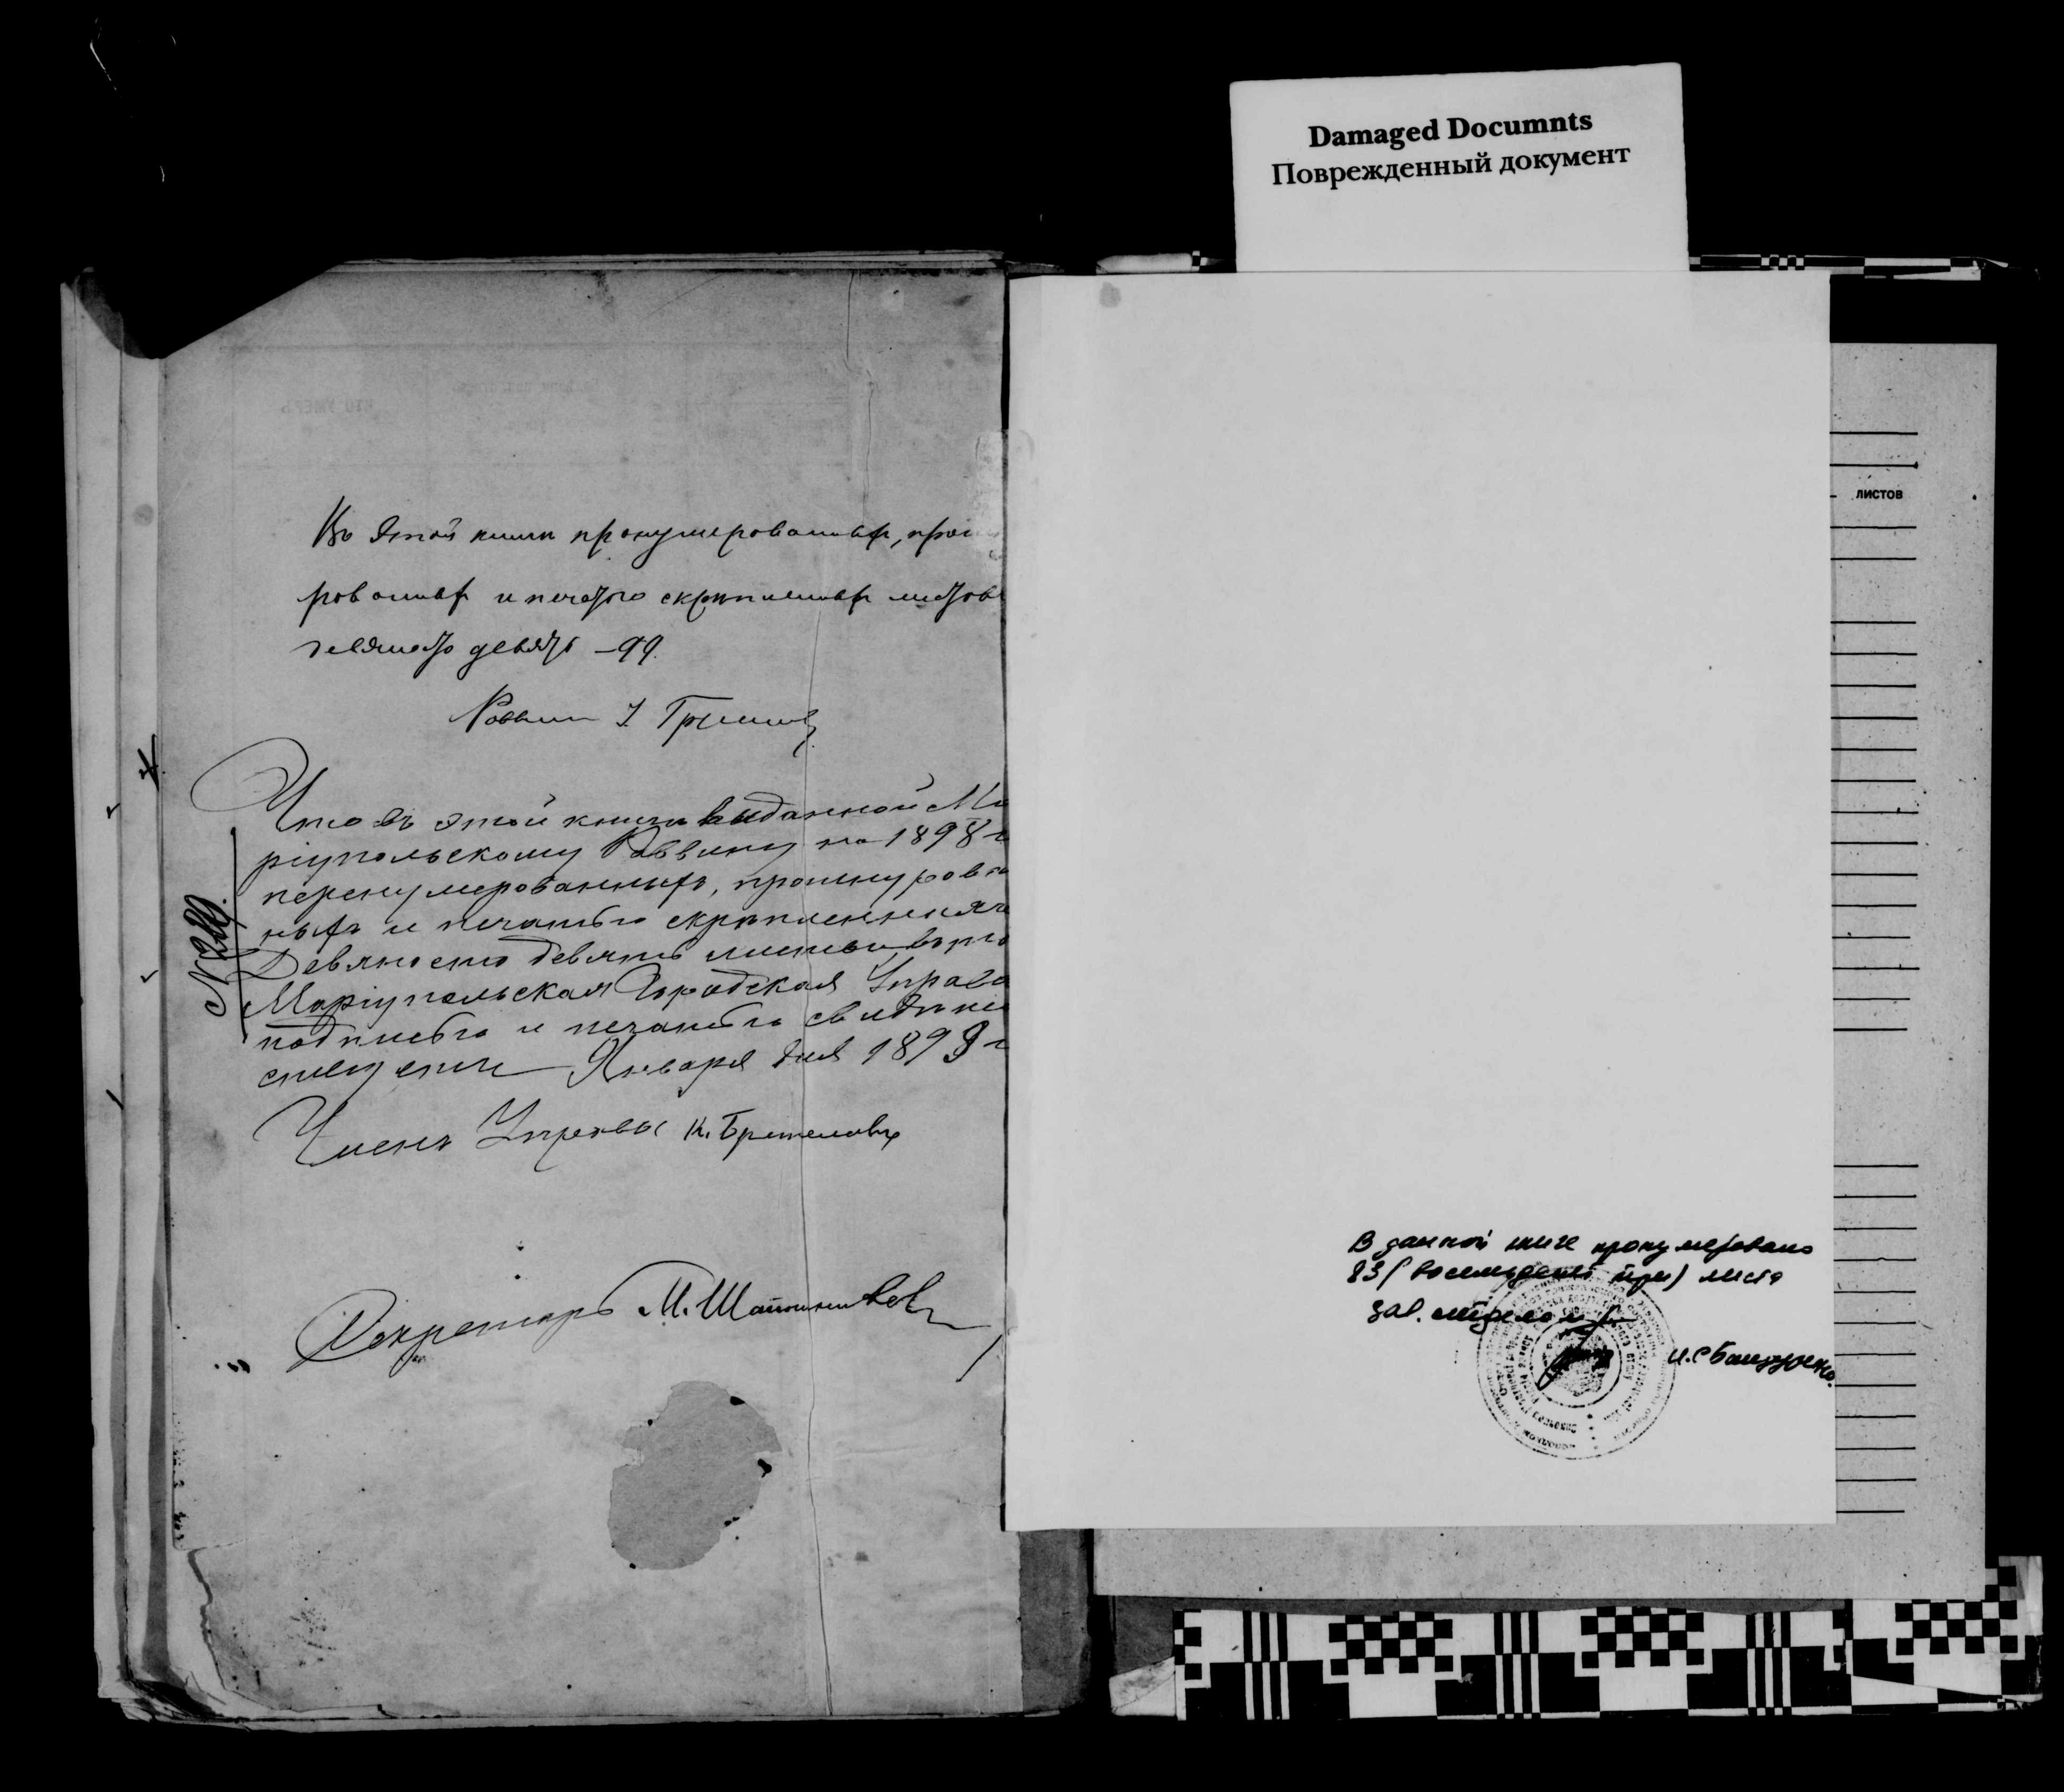 Damaged Documnts
Поврежденный документ
листов
Въ этой книгѣ пронумерованныхъ, прош
рованныхъ и печатью скрѣпленныхъ листовъ
девяносто девять - 99.
Раввинъ
Что въ этой книгѣ выданной Ма
ріупольскому Раввину на 1898 г
перенумерованныхъ, прошнурован
ныхъ и печатью скрѣпленныхъ
Девяносто девять листовъ, въ том
Маріупольская Городская Управа
подписью и печатью свидѣтель
ствуетъ Января дня 1898 г
№
Членъ Управы К.
Секретарь М.
В данной книге пронумеровано
83 (восемьдесят три) листа
Зав. отделом
И.С.
КТО УМЕРЪ